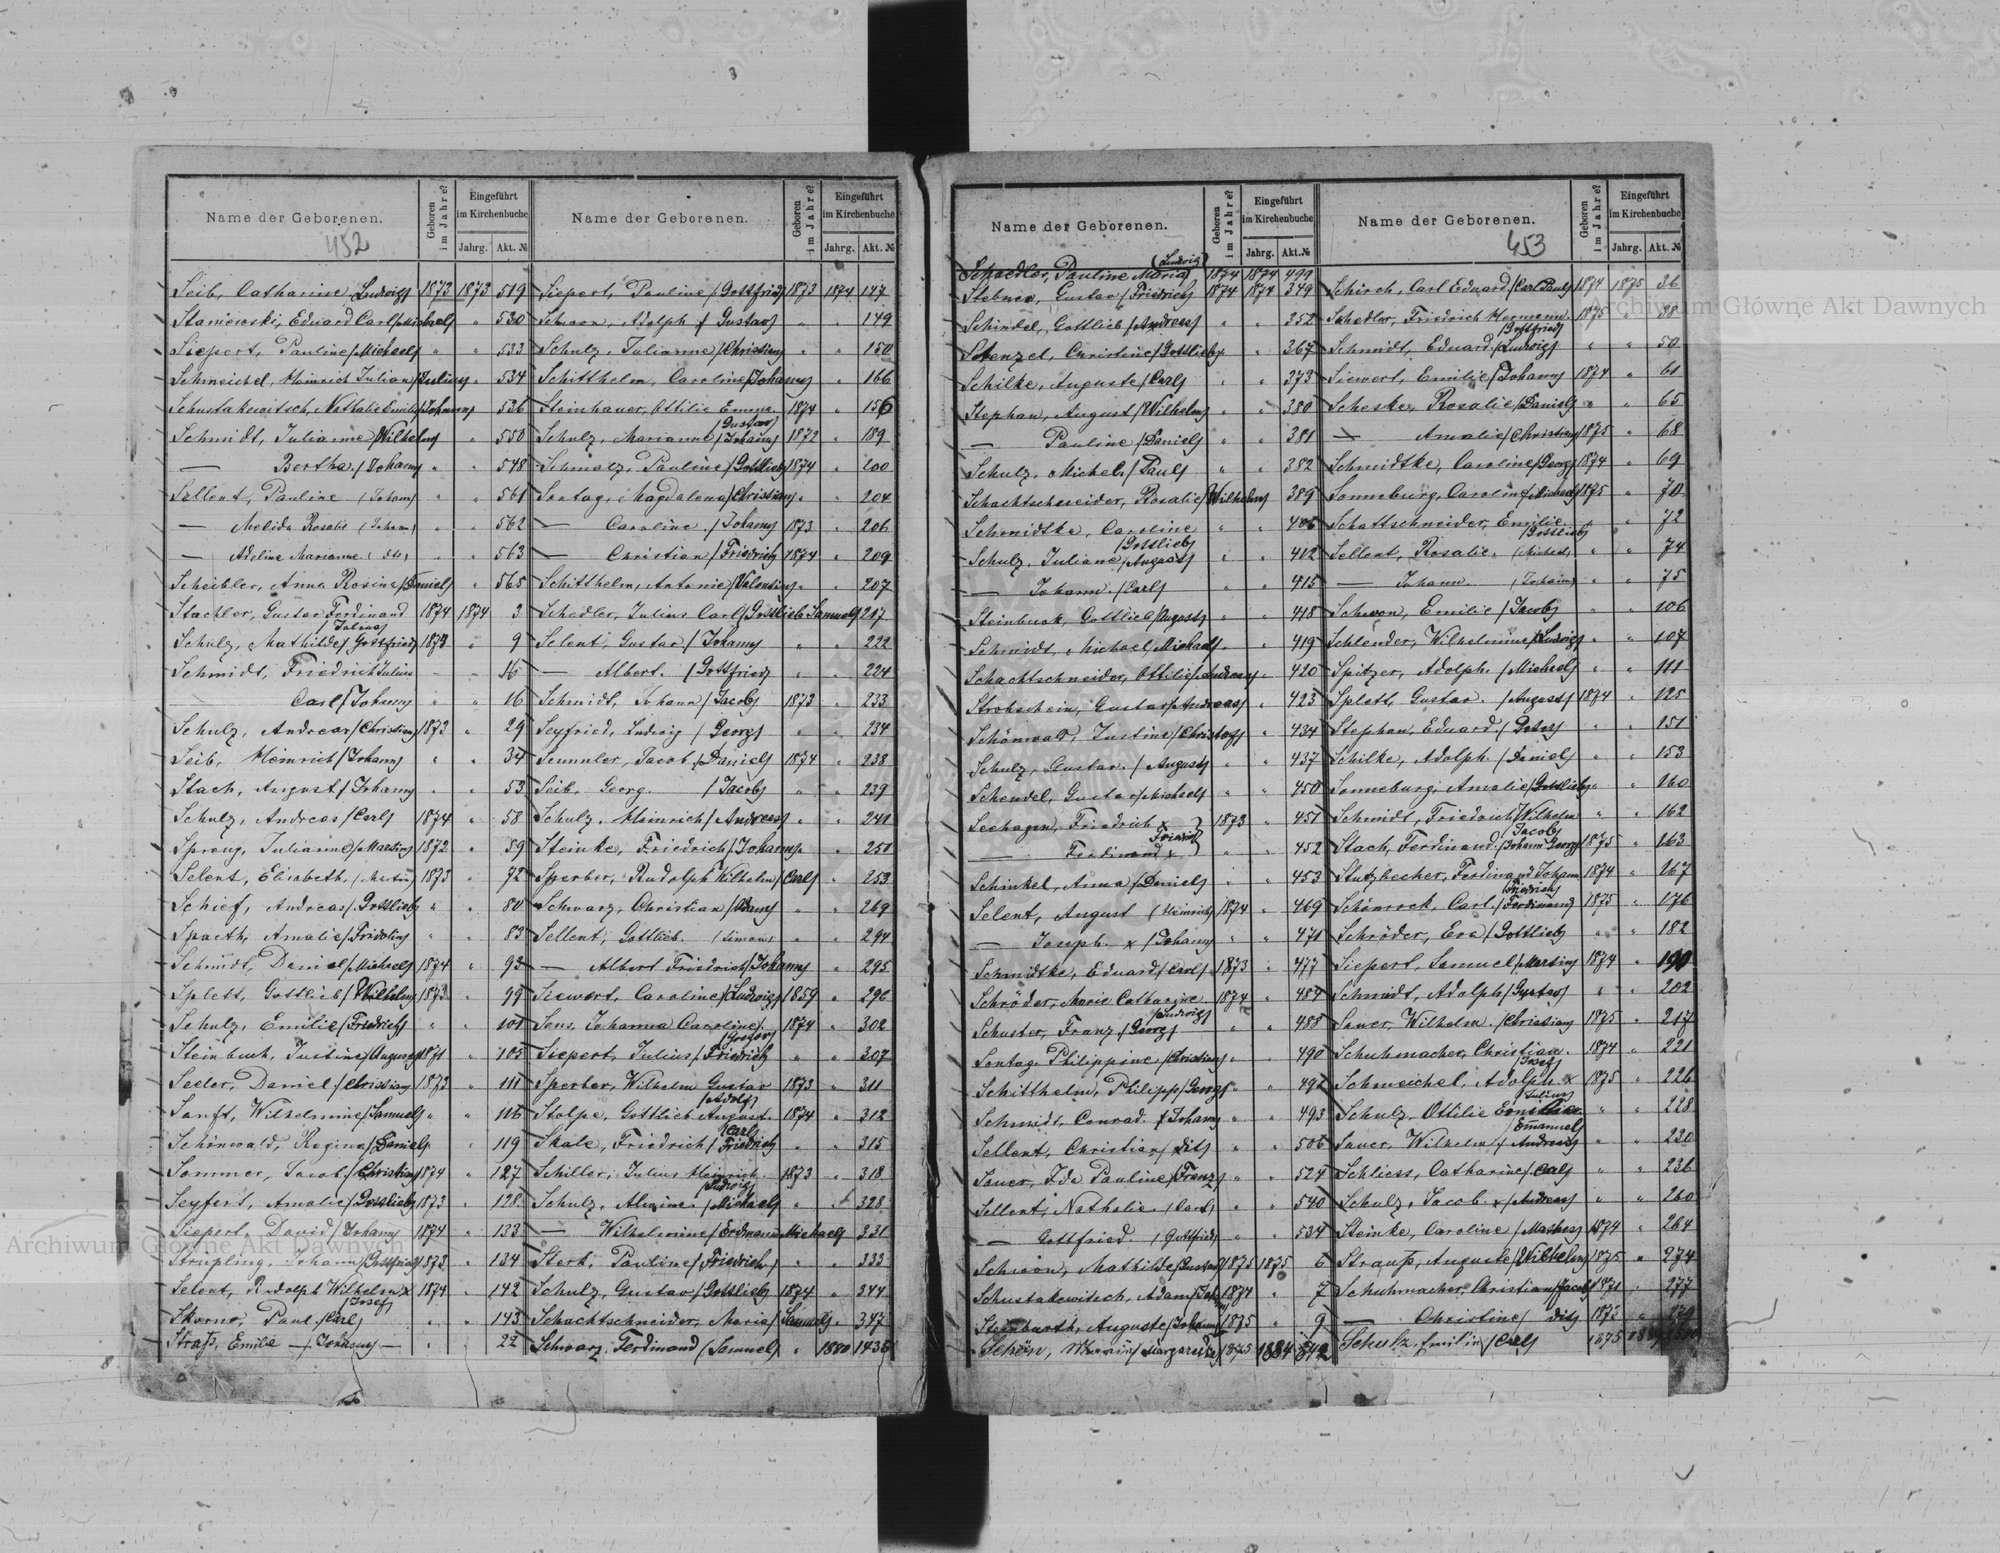 Name der Geborenen. Geboren im Jahre? Eingeführt im Kirchenbuche Jahrg. Akt. №
452
Seib, Catharine (Ludwig) 1873 1873 519
Staniewski, Eduard Carl (Michael) " " 530
Siepert, Pauline (Michael) " " 533
Schmeichel, Heinrich Julian (Julius) " 534
Schustakewitsch, Nathalie Emilie (Johann) " 536
Schmidt, Julianne (Wilhelm) " 550
— Bertha (Johann) " " 548
Sellent, Pauline (Johann) " " 561
— Melida Rosalie (Johann) " " 562
— Adeline Marianne (dto) " " 563
Scheibler, Anna Rosine (Daniel) " 565
Stachler, Gustav Ferdinand (Julius) 1874 1874 3
Schulz, Mathilde (Gottfried) 1873 " 9
Schmidt, Friedrich Julius " " 16
Carl (Johann) " " 16
Schulz, Andreas (Christian) 1873 " 29
Seib, Heinrich (Johann) " " 34
Stach, August (Johann) " " 53
Schulz, Andreas (Carl) 1874 " 58
Spreng, Julianne (Martin) 1872 " 59
Selent, Elisabeth, (Martin) 1873 " 72
Schief, Andreas (Gottlieb) " " 80
Spaeth, Amalie (Fridolin) " " 83
Schmidt, Daniel (Michael) 1874 " 93
Splett, Gottlieb (Wilhelm) 1873 " 99
Schulz, Emilie (Friedrich) " " 101
Steinbuch, Justine (August) 1871 " 105
Seeler, Daniel (Christian) 1873 " 111
Sanft, Wilhelmine (Samuel) " " 116
Schönwald, Regine (Daniel) " 119
Sommer, Jacob (Christian) 1874 " 127
Seyfert, Amalie (Gottlieb) 1873 " 128
Siepert, David (Johann) 1874 " 133
Strupling, Johann (Gottfried) 1873 " 134
Selent, Rudolph Wilhelm x (Josef) 1874 " 142
Skorno, Paul (Carl) " " 143
Straß, Emilie — (Johann) — " " 22
Name der Geborenen. Geboren im Jahre? Eingeführt im Kirchenbuche Jahrg. Akt. №
Siepert, Pauline (Gottfried) 1873 1874 147
Schwon, Adolph (Gustav) " 149
Schulz, Julianne (Christian) " " 150
Schitthelm, Caroline (Johann) " 166
Steinhauer, Ottilie Emma (Gustav) 1874 " 156
Schulz, Marianne (Johann) 1872 " 189
Schmalz, Pauline (Gottlieb) 1874 " 200
Sontag, Magdalena (Christian) " " 204
— Caroline (Johann) 1873 " 206
— Christian (Friedrich) 1874 " 209
Schitthelm, Antonie (Valentin) " " 207
Schedler, Julius Carl (Gottlieb Samuel) 217
Selent, Gustav (Johann) " " 222
— Albert (Gottfried) " " 224
Schmidt, Johann (Jacob) 1873 " 233
Seyfried, Ludwig (Georg) " " 234
Semmler, Jacob (Daniel) 1874 " 238
Seib, Georg (Jacob) " " 239
Schulz, Heinrich (Andreas) " " 241
Steinke, Friedrich (Johann) " " 251
Sperber, Rudolph Wilhelm (Carl) " 253
Schwarz, Christian (Adam) " " 269
Sellent, Gottlieb (Simon) " " 294
— Albert Friedrich (Johann) " 295
Siewert, Caroline (Ludwig) 1859 " 296
Sens, Johanna Caroline (Gustav) 1874 " 302
Siepert, Julius (Friedrich) " " 307
Sperber, Wilhelm Gustav (Adolf) 1873 " 311
Stolpe, Gottlieb August (Carl) 1874 " 312
Skale, Friedrich (Friedrich) " " 315
Schiller, Julius Heinrich (Ludwig) 1873 " 318
Schulz, Alwine (Michael) " " 328
— Wilhelmine (Erdmann Michael) 331
Sterk, Pauline (Friedrich) " " 333
Schulz, Gustav (Gottlieb) 1874 " 344
Schachtschneider, Maria (Samuel) " 347
Schwarz, Ferdinand (Samuel) " 1880 1435
Name der Geborenen. Geboren im Jahre? Eingeführt im Kirchenbuche Jahrg. Akt. №
Schaedler, Pauline Maria (Ludwig) 1874 1874 499
Stebner, Gustav (Friedrich) 1874 1874 349
Schindel, Gottlieb (Andreas) " " 352
Stenzel, Christine (Gottlieb) " " 367
Schilke, Auguste (Carl) " " 373
Stephan, August (Wilhelm) " " 380
— Pauline (Daniel) " " 381
Schulz, Michel (Paul) " " 382
Schachtschneider, Rosalie (Wilhelm) 389
Schmidtke, Caroline (Gottlieb) " " 406
Schulz, Juliane (August) " " 412
— Johann (Carl) " 415
Steinbuck, Gottlieb (August) " " 418
Schmidt, Michael (Michael) " " 419
Schachtschneider, Ottilie (Andreas) " 420
Strohschein, Gustav (Andreas) " 423
Schönwald, Justine (Christoph) " 434
Schulz, Gustav (August) " " 437
Schendel, Gustav (Michael) " " 450
Seehagen, Friedrich x (Friedrich) 1873 " 451
— Ferdinand x " " 452
Schinkel, Anna (Daniel) " " 453
Selent, August (Heinrich) 1874 " 469
— Joseph x (Johann) " " 471
Schmidtke, Eduard (Carl) 1873 " 477
Schröder, Marie Catharine (Ludwig) 1874 " 487
Schuster, Franz (Georg) " " 488
Sontag, Philippine (Christian) " " 490
Schitthelm, Philipp (Georg) " " 492
Schmidt, Conrad (Johann) " " 493
Sellent, Christian (dto) " " 506
Sauer, Ida Pauline (Franz) " " 524
Sellent, Nathalie (Carl) " " 540
— Gottfried (Gottfried) " " 534
Schwon, Mathilde (Gustav) 1875 1875 6
Schustakewitsch, Adam (Johann) 1874 " 7
Steinbarth, Auguste (Johann) 1875 " 9
Schön, (Margaretha) 1875 1884 842
Name der Geborenen. Geboren im Jahre? Eingeführt im Kirchenbuche Jahrg. Akt. №
453
Schirch, Carl Eduard (Carl Paul) 1874 1875 36
Schedler, Friedrich Hermann (Gottfried) 1875 " 38
Schmidt, Eduard (Ludwig) " " 50
Siewert, Emilie (Johann) 1874 " 61
Scheske, Rosalie (Daniel) " " 65
— Amalie (Christian) 1875 " 68
Schmidtke, Caroline (Georg) 1874 " 69
Sonneburg, Caroline (Michael) 1875 " 70
Schattschneider, Emilie (Gottlieb) " " 72
Sellent, Rosalie (Michael) " " 74
— Johann (Johann) " " 75
Schwon, Emilie (Jacob) " " 106
Schlender, Wilhelmine (Ludwig) " " 107
Spitzer, Adolph (Michael) " " 111
Splett, Gustav (August) 1874 " 125
Stephan, Eduard (Peter) " " 151
Schilke, Adolph (Daniel) " " 153
Sonneburg, Amalie (Gottlieb) " " 160
Schmidt, Friedrich (Wilhelm Jacob) " " 162
Stach, Ferdinand (Johann Georg) 1875 " 163
Stutzbecher, Ferdinand Johann (Friedrich) 1874 " 167
Schönrock, Carl (Ferdinand) 1875 " 176
Schröder, Eva (Gottlieb) " " 182
Siepert, Samuel (Martin) 1874 " 190
Schmidt, Adolph (Gustav) " " 202
Sauer, Wilhelm (Christian) 1875 " 217
Schuhmacher, Christian (Josef) 1874 " 221
Schmeichel, Adolph x (Julius) 1875 " 226
Schulz, Ottilie Emilie (Emanuel) " " 228
Sauer, Wilhelm (Andreas) " " 230
Schliess, Catharine (Carl) " " 236
Schulz, Jacob x (Andreas) " " 260
Steinke, Caroline (Matheus) 1874 " 264
Strauß, Auguste (Wilhelm) 1875 " 274
Schuhmacher, Christian (Jacob) 1871 " 277
— Christine (dito) 1873 " 279
Schulz, Emilie (Carl) 1875
Archiwum Główne Akt Dawnych
Archiwum Główne Akt Dawnych